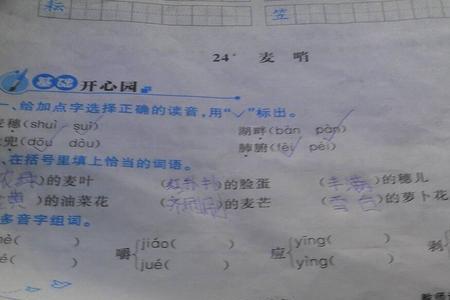 耘 笠
24* 麦 哨
基础 开心园
一、给加点字选择正确的读音,用"✓"标出。
穗(shuì suì) 湖畔(bàn pàn)
兜(dōu dòu) 肺腑(fèi pèi)
、在括号里填上恰当的词语。
的麦叶 (红扑扑)的脸蛋 (丰满)的穗儿
的油菜花 的麦芒 (雪白)的萝卜花
多音字组词。
嚼 jiáo( ) 应 yīng( ) 剥
jué( ) yìng( )